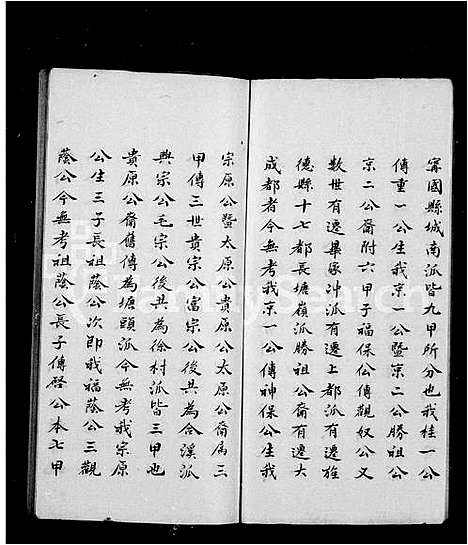 甯國縣城南派皆九甲所分也我桂一公
傳重一公生我京一公暨京二公勝祖公
京二公裔附六甲子福保公傳觀奴公又
数世有遷畢家冲派有遷上都派有遷旌
德縣十七都長塘嶺派勝祖公裔有遷大
成都者今無考我京一公傳神保公生我
宗原公暨太原公貴原公太原公裔為三
甲傳三世貴宗公富宗公後共為合溪派
興宗公毛宗公後共為徐村派皆三甲也
貴原公裔舊傳為塘頭派今無考我宗原
公生三子長祖蔭公次即我福蔭公三觀
蔭公今無考祖蔭公長子傳啓公本七甲
FamilySearch